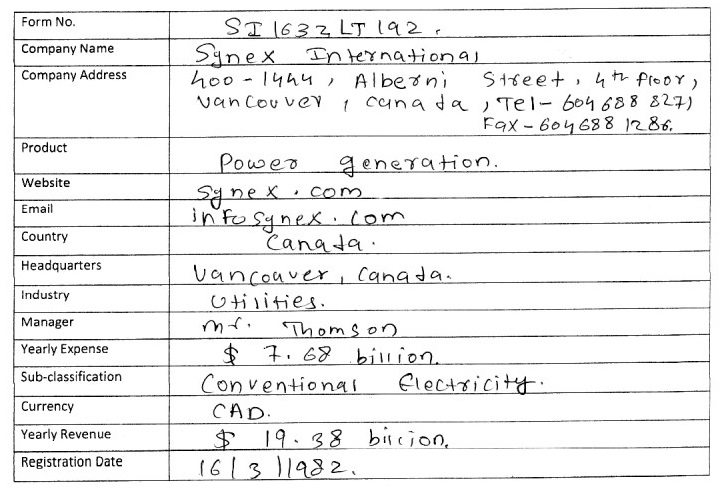 Form No. SI 1632 LT 192.
Company Name Synex International
Company Address 400-1444, Alberni Street, 4th floor,
Vancouver, canada, Tel-604 688 8271
Fax-604 688 1286.
Product Power generation.
Website synex.com
Email infosynex.com
Country Canada.
Headquarters Vancouver, Canada.
Industry Utilities.
Manager mr. Thomson
Yearly Expense $ 7.68 billion.
Sub-classification Conventional Electricity.
Currency CAD.
Yearly Revenue $ 19.38 billion.
Registration Date 16/3/1982.